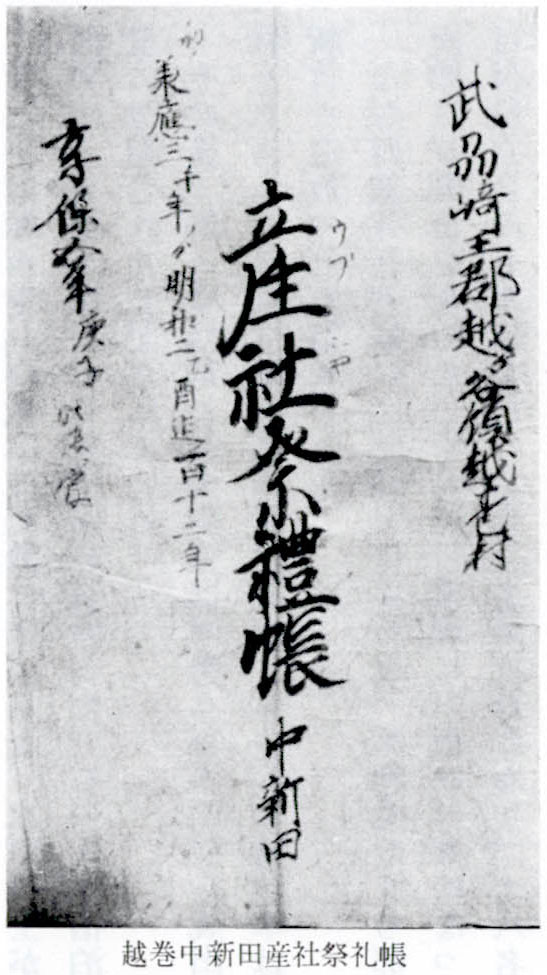 武刕﨑玉郡越ヶ谷領越巻村
産社祭禮帳
ウブ
中新田
承應三午年ゟ明和二乙酉迄百十二年
享保五年庚子
越巻中新田産社祭礼帳